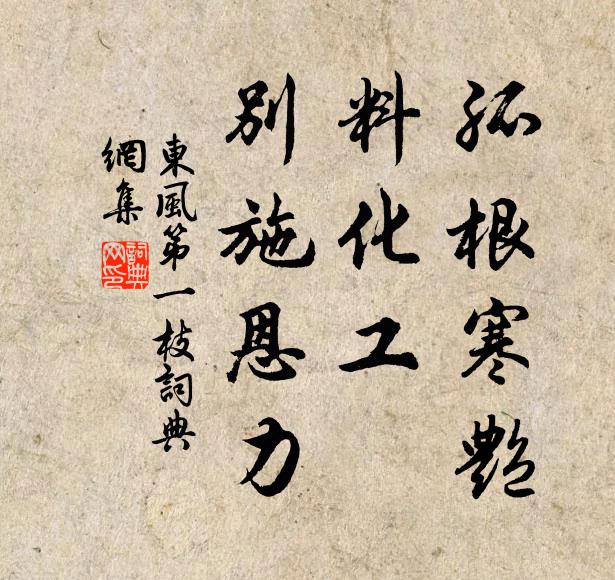 孤根寒艷
料化工
別施恩力
東風第一枝詞典
網集
詞典
网印